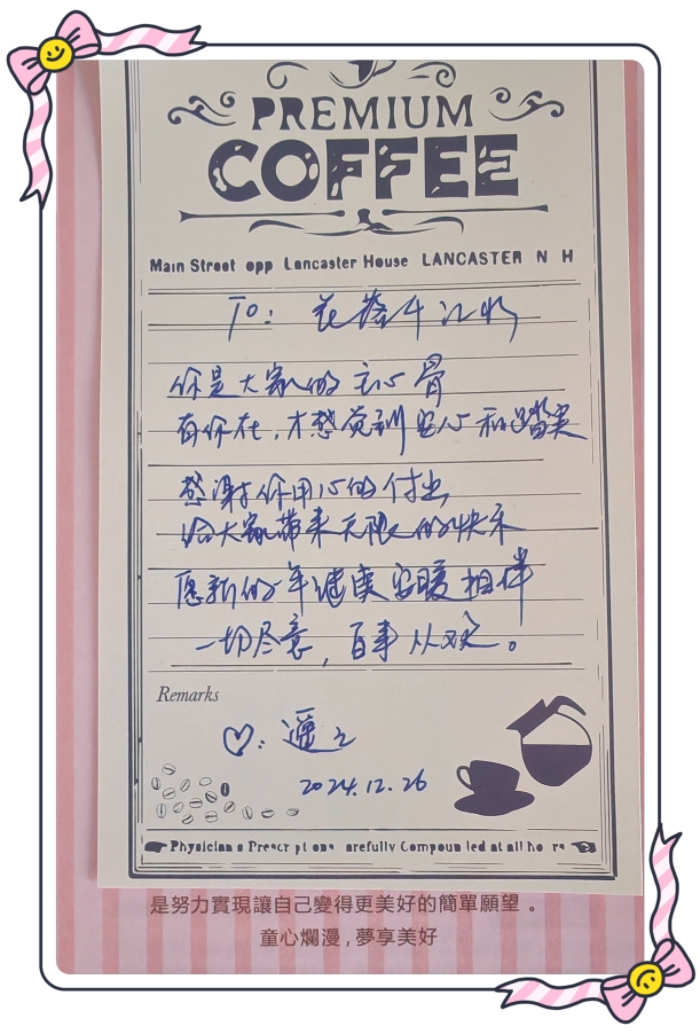 PREMIUM
COFFEE
Main Street opp Lancaster House LANCASTER N H
To: 花落千江
你是大家的主心骨
有你在,才感觉到安心和踏实
感谢你用心的付出,
给大家带来无限的快乐
愿新的一年健康安暖相伴
一切尽意,百事从欢。
Remarks
♡:
2024.12.26
Physician s Prescr pt ons arefully Compoun led at all ho rs
是努力實現讓自己變得更美好的簡單願望。
童心爛漫,夢享美好